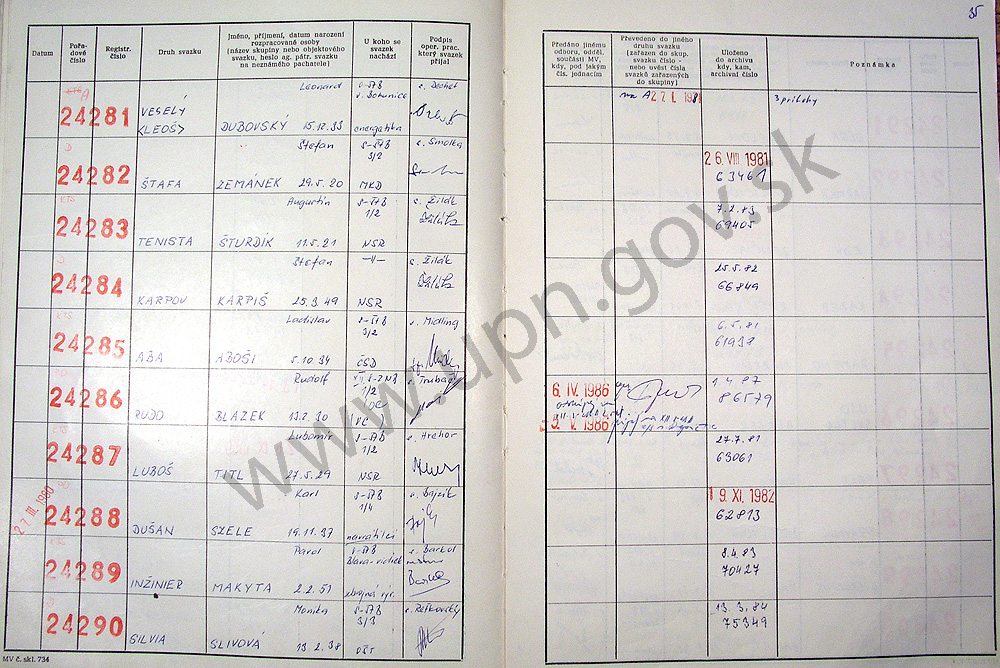 35
Datum
Pořa-
dové
číslo
Registr.
číslo
Druh svazku
Jméno, příjmení, datum narození
rozpracované osoby
(název skupiny nebo objektového
svazku, heslo ag. pátr. svazku
na neznámého pachatele)
U koho se
svazek
nachází
Podpis
oper. prac.
který svazek
přijal
Předáno jinému
odboru, odděl.
součásti MV,
kdy, pod jakým
čís. jednacím
Převedeno do jiného
druhu svazku
(zařazen do skup.
svazku číslo -
nebo uvést čísla
svazků zařazených
do skupiny)
Uloženo
do archivu
kdy, kam,
archivní číslo
Poznámka
24281
VESELÝ
<LEOŠ>
Leonard
DUBOVSKÝ 15.12.33
energetika
na A 3 prílohy
24282
ŠTAFA
Štefan
ZEMÁNEK 29.5.20
S-ŠTB
3/2
MKD
s. Smolka
26 VIII 1981
63461
24283
KTS
TENISTA
Augustín
ŠTURDÍK 11.5.21
S-ŠTB
1/2
NSR
s. Žilák
7.2.83
69405
24284
KARPOV
Štefan
KARPIŠ 25.3.49
-//-
NSR
s. Žilák
25.5.82
66849
24285
KTS
ABA
Ladislav
ABOŠI 5.10.34
S-ŠTB
3/2
ČSD
s. Midling
6.5.81
61938
24286
RUDO
Rudolf
BLAZEK 13.2.30
1/2
6. IV. 1986
5. V. 1986
1.4.87
86579
24287
LUBOŠ
Lubomír
TITL 27.5.29
S-ŠTB
1/2
NSR
s. Hrehor
27.7.81
63061
27. III. 1980
24288
DUŠAN
Karl
SZELE 19.11.37
S-ŠTB
1/4
navrátilci
s. Bajzík
19. XI. 1982
62813
24289
INŽINIER
Pavol
MAKYTA 2.2.51
S-ŠTB
Blava-vidiek
zbrojná výr.
8.4.83
70427
24290
SILVIA
Monika
SLIVOVÁ 13.2.38
S-ŠTB
3/3
s. Retkovský
13.3.84
75349
MV č. skl. 734
www.upn.gov.sk